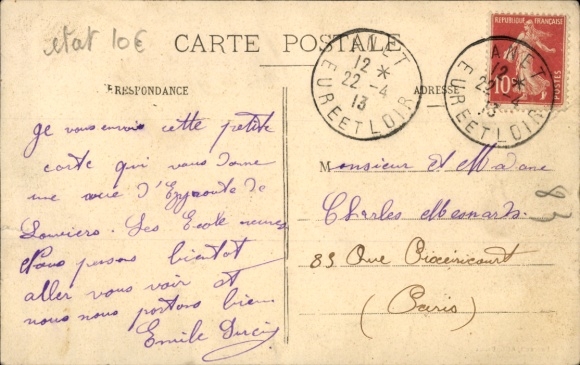 etat 10€
CARTE POSTALE
RÉPUBLIQUE FRANÇAISE
10
POSTES
ANET
12 *
22 - 4
13
EURE ET LOIR
ANET
12 *
22 - 4
13
EURE ET LOIR
RRESPONDANCE
ADRESSE
Je vous envoie cette petite
carte qui vous donne
une vue d'
de
Les Ecole neuves
Nous pensons bientot
aller vous voir et
nous nous portons bien
Emile
Monsieur et Madame
Charles Mesnard
83 Rue
(Paris)
83